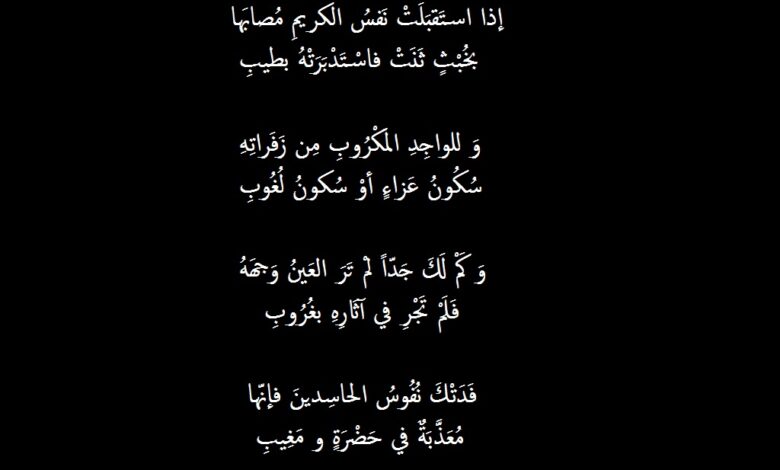 إذا استَقبَلَتْ نَفسُ الكريمِ مُصابَها
بخُبْثٍ ثَنَتْ فاسْتَدْبَرَتْهُ بطيبِ
وَ للواجِدِ المَكْرُوبِ مِن زَفَراتِهِ
سُكُونُ عَزاءٍ أوْ سُكونُ لُغُوبِ
وَ كَمْ لَكَ جَدّاً لمْ تَرَ العَينُ وَجهَهُ
فَلَمْ تَجْرِ في آثارِهِ بغُرُوبِ
فَدَتْكَ نُفُوسُ الحاسِدينَ فإنّها
مُعَذَّبَةٌ في حَضْرَةٍ و مَغِيبِ